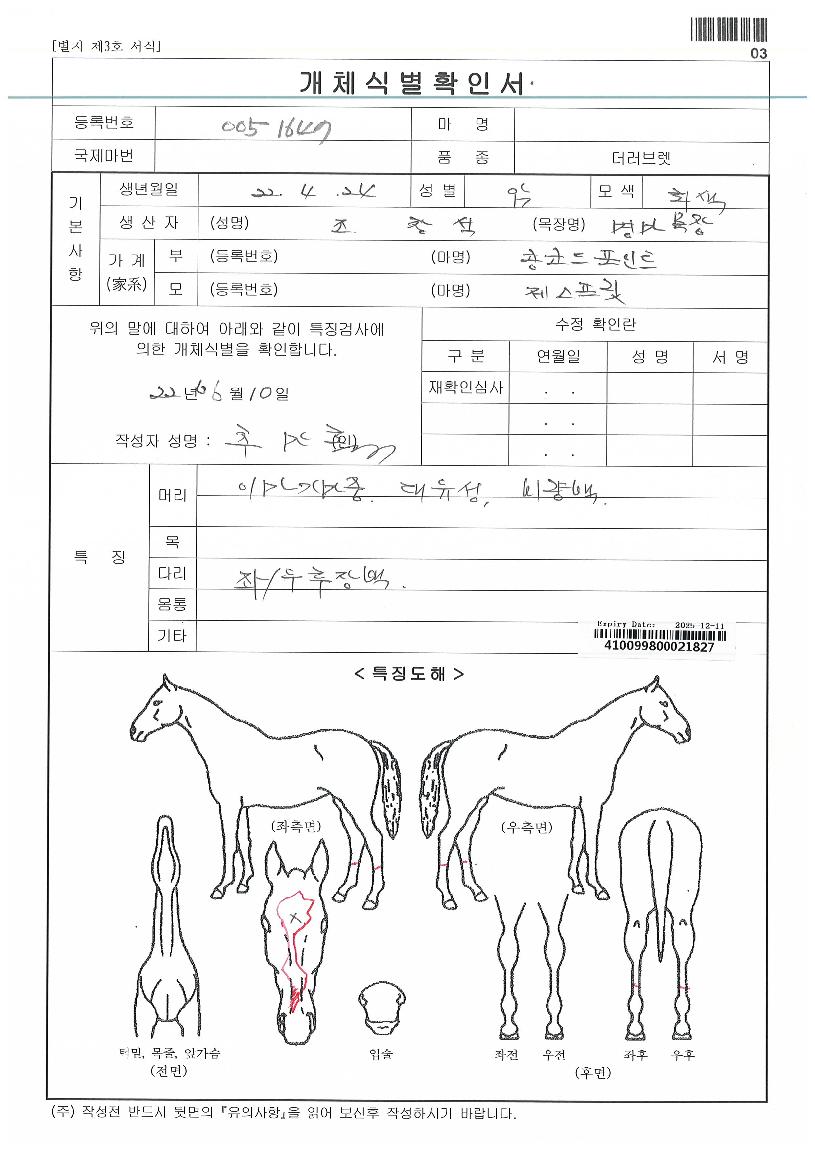 [별지 제3호 서식]
03
개체식별확인서
등록번호 005-1649 마 명
국제마번 품 종 더러브렛
기본사항
생년월일 22. 4. 24 성 별 암 모 색 회색
생 산 자 (성명) 조 창 석 (목장명)
가 계 (家系) 부 (등록번호) (마명)
모 (등록번호) (마명) 제스프릿
위의 말에 대하여 아래와 같이 특징검사에
의한 개체식별을 확인합니다.
22년 6월 10일
작성자 성명 : (인)
수정 확인란
구 분 연월일 성 명 서 명
재확인심사 . .
. .
. .
특 징
머리 대유성, 비량백.
목
다리 좌/우후장백.
몸통
기타
Expiry Date: 2025-12-11
410099800021827
< 특징도해 >
(좌측면) (우측면)
턱밑, 목줄, 앞가슴 입술 좌전 우전 좌후 우후
(전면) (후면)
(주) 작성전 반드시 뒷면의 『유의사항』을 읽어 보신후 작성하시기 바랍니다.